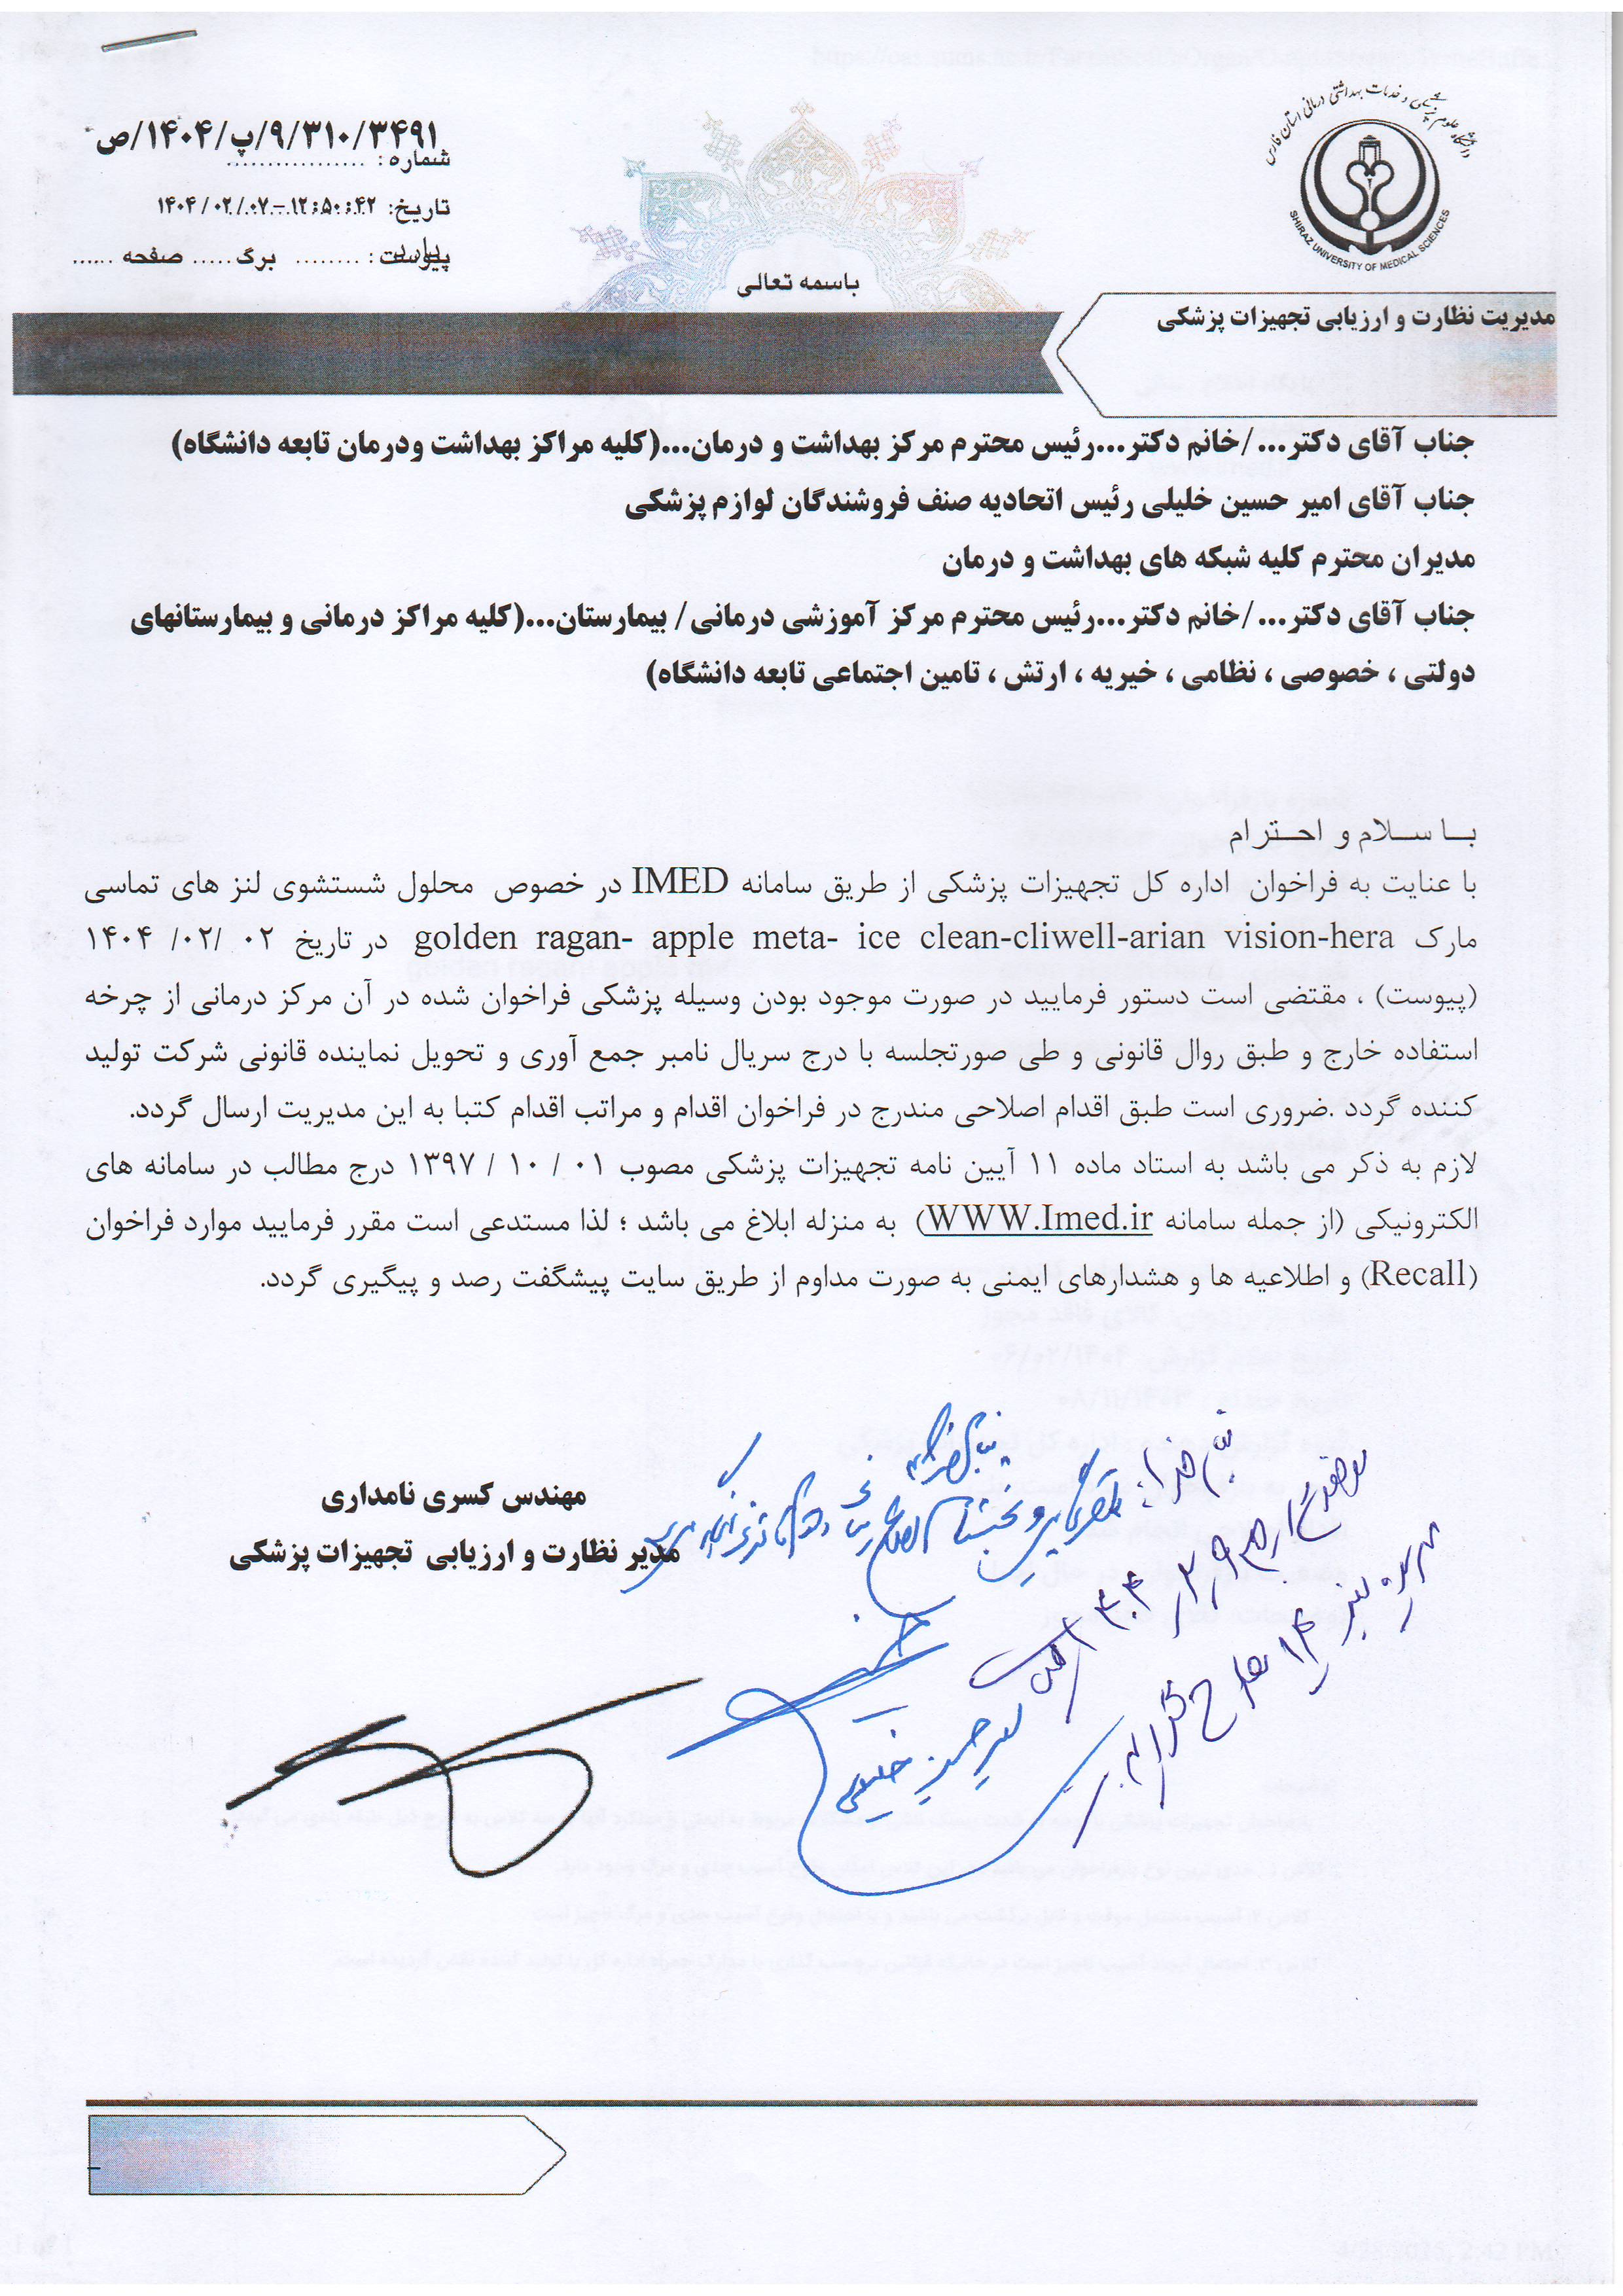 دانشگاه علوم پزشکی و خدمات بهداشتی درمانی استان فارس
SHIRAZ UNIVERSITY OF MEDICAL SCIENCES
۱۴۰۴/پ/۹/۳۱۰/۳۴۹۱/ص
شماره : ..................
تاریخ: ۱۲:۵۰:۴۲ – ۱۴۰۴/۰۲/۰۷
پیوست : ........ برگ ..... صفحه ......
باسمه تعالی
مدیریت نظارت و ارزیابی تجهیزات پزشکی
جناب آقای دکتر... /خانم دکتر...رئیس محترم مرکز بهداشت و درمان...(کلیه مراکز بهداشت ودرمان تابعه دانشگاه)
جناب آقای امیر حسین خلیلی رئیس اتحادیه صنف فروشندگان لوازم پزشکی
مدیران محترم کلیه شبکه های بهداشت و درمان
جناب آقای دکتر... /خانم دکتر...رئیس محترم مرکز آموزشی درمانی/ بیمارستان...(کلیه مراکز درمانی و بیمارستانهای
دولتی ، خصوصی ، نظامی ، خیریه ، ارتش ، تامین اجتماعی تابعه دانشگاه)
بـا سـلام و احـترام
با عنایت به فراخوان اداره کل تجهیزات پزشکی از طریق سامانه IMED در خصوص محلول شستشوی لنز های تماسی
مارک golden ragan- apple meta- ice clean-cliwell-arian vision-hera در تاریخ ۰۲ /۰۲/ ۱۴۰۴
(پیوست) ، مقتضی است دستور فرمایید در صورت موجود بودن وسیله پزشکی فراخوان شده در آن مرکز درمانی از چرخه
استفاده خارج و طبق روال قانونی و طی صورتجلسه با درج سریال نامبر جمع آوری و تحویل نماینده قانونی شرکت تولید
کننده گردد .ضروری است طبق اقدام اصلاحی مندرج در فراخوان اقدام و مراتب اقدام کتبا به این مدیریت ارسال گردد.
لازم به ذکر می باشد به استاد ماده ۱۱ آیین نامه تجهیزات پزشکی مصوب ۰۱ / ۱۰ / ۱۳۹۷ درج مطالب در سامانه های
الکترونیکی (از جمله سامانه WWW.Imed.ir) به منزله ابلاغ می باشد ؛ لذا مستدعی است مقرر فرمایید موارد فراخوان
(Recall) و اطلاعیه ها و هشدارهای ایمنی به صورت مداوم از طریق سایت پیشگفت رصد و پیگیری گردد.
مهندس کسری نامداری
مدیر نظارت و ارزیابی تجهیزات پزشکی
امیرحسین خلیلی